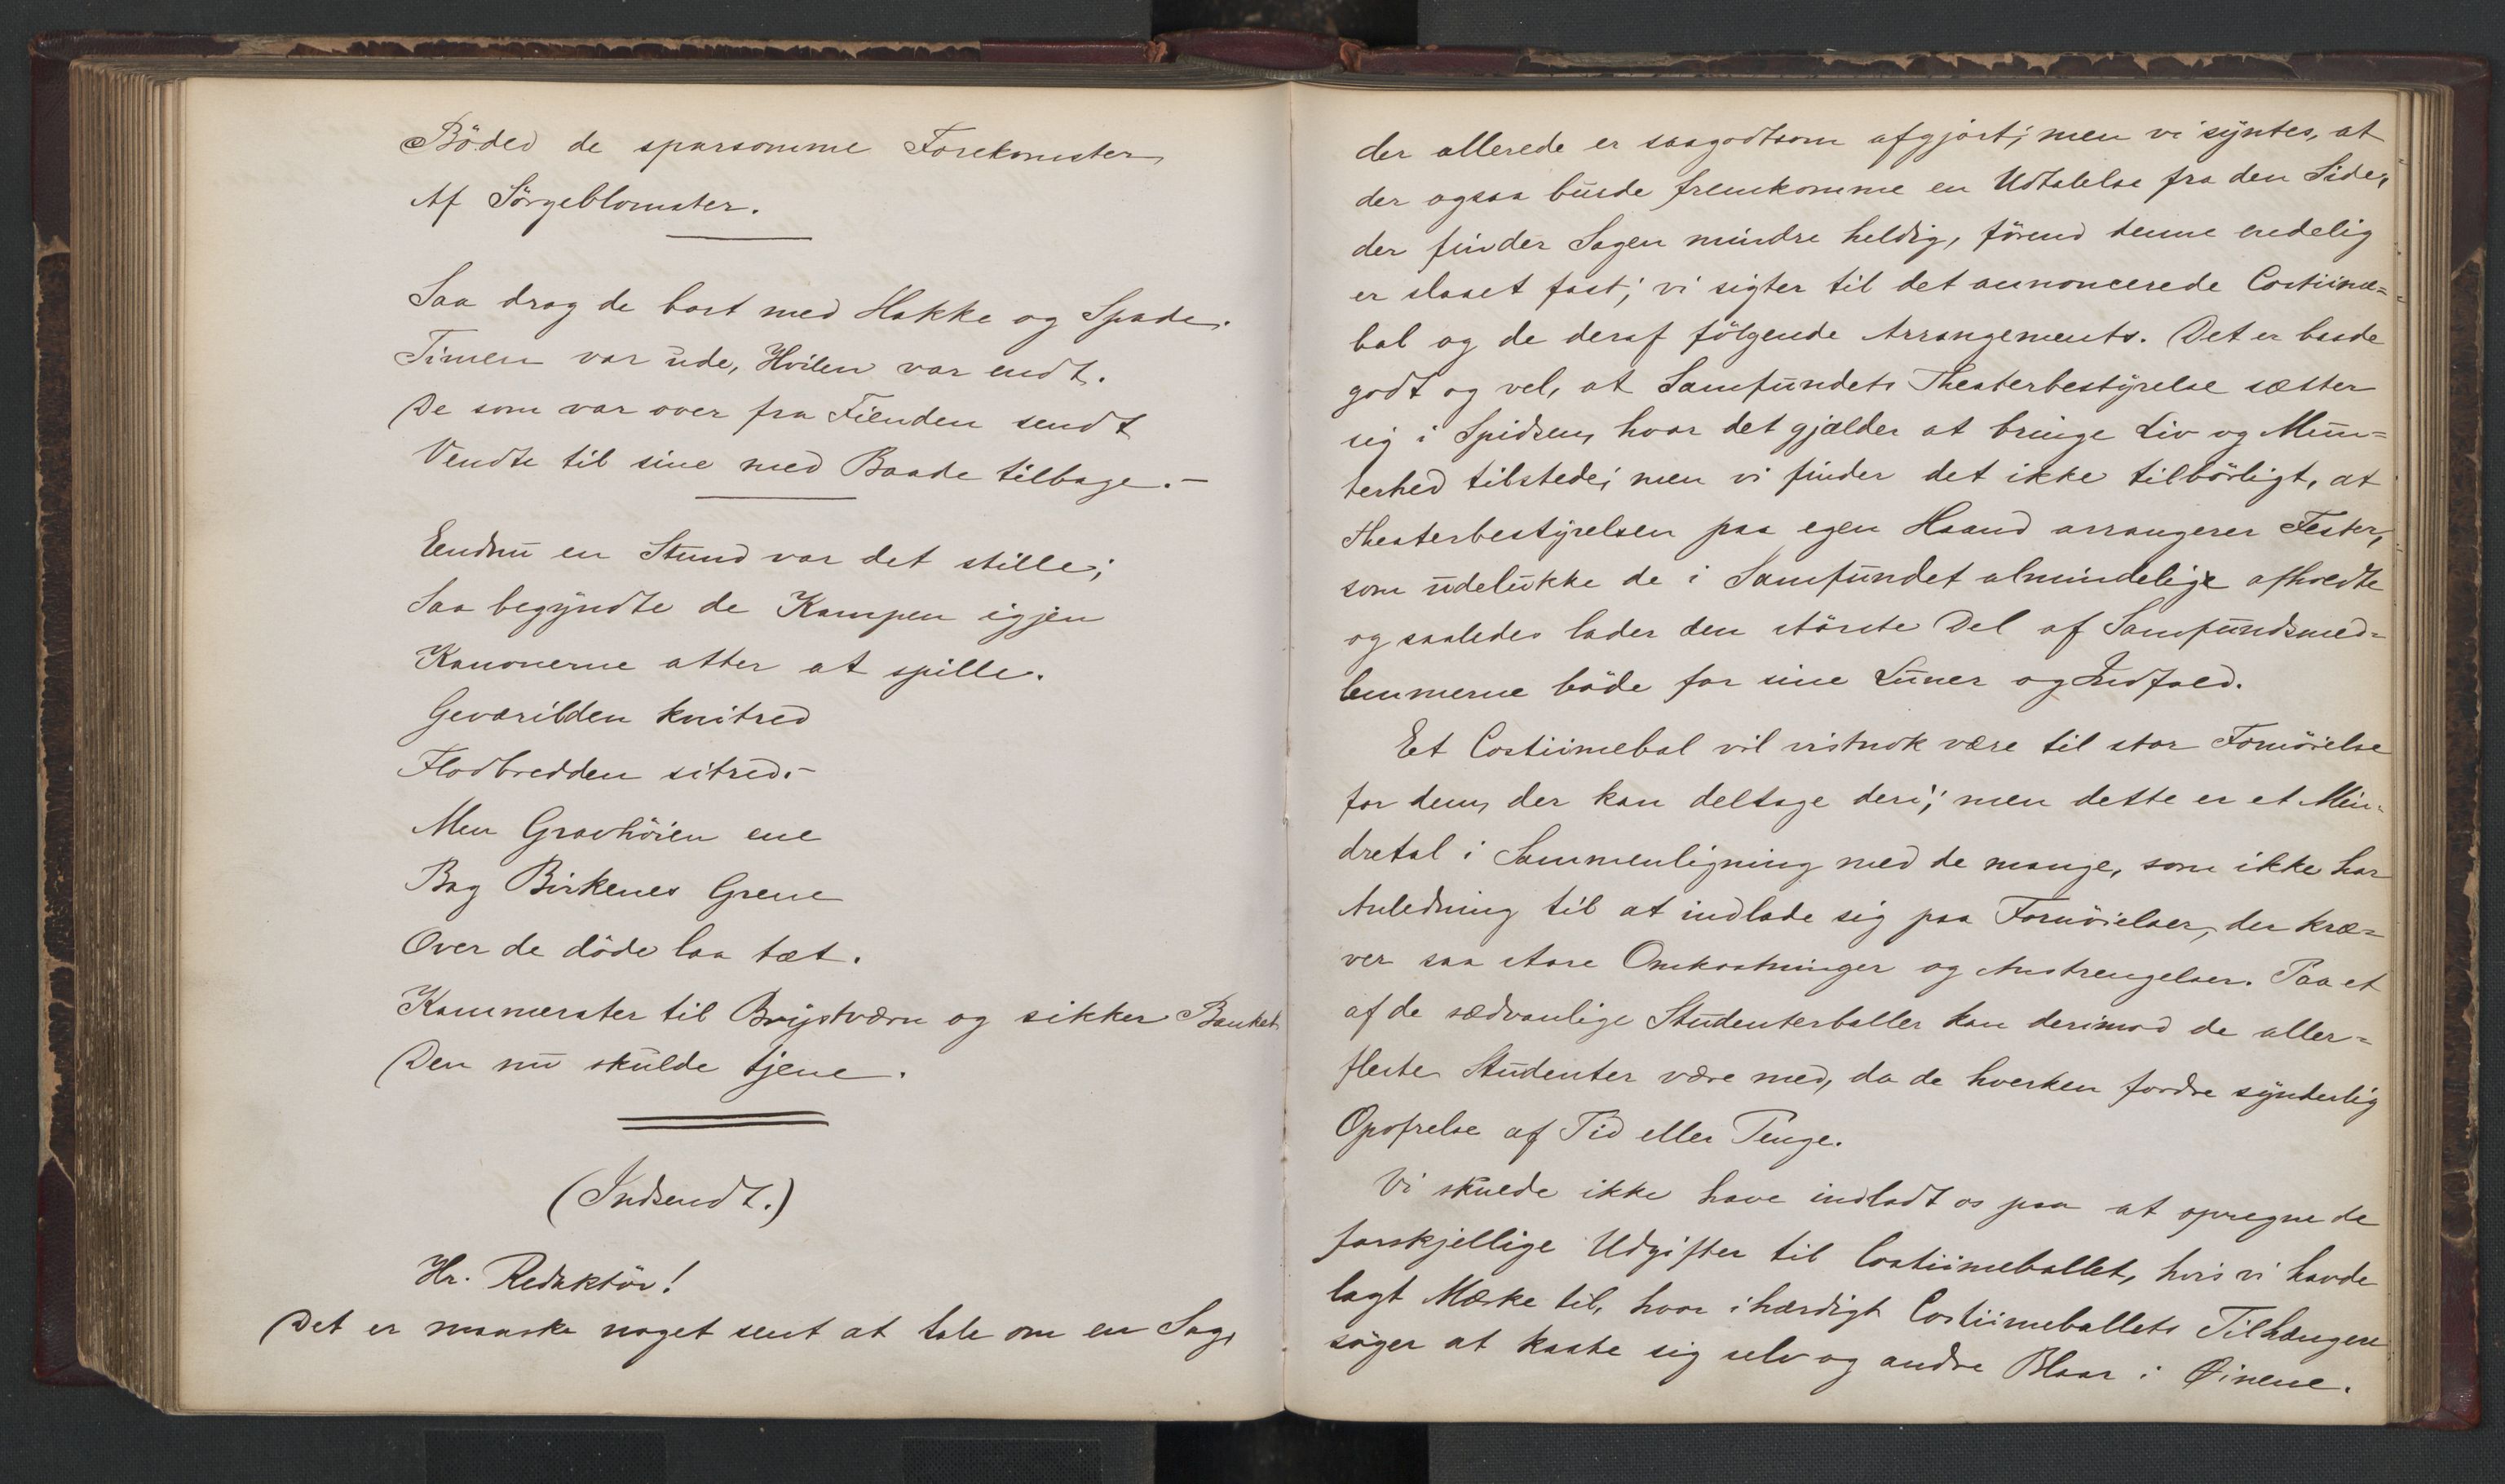 Böded de sparsomme Forekomster
Af Sörgeblomster.
Saa drog de bort med Hakke og Spade.
Timen var ude, Hvilen var endt.
De som var over fra Fienden sendt
Vendte til sine med Baade tilbage.-
Eendnu en Stund var det stille;
Saa begyndte de Kampen igjen
Kanonerne atter at spille.
Geværilden knitred
Flodbredden sitred.-
Men Gravhöien ene
Bag Birkenes Grene
Over de döde laa tæt.
Kammerater til Brystværn og sikker Banket
Den nu skulde tjene.
(Indsendt.)
Hr. Redaktör!
Det er maaske noget sent at tale om en Sag,
der allerede er saagodtsom afgjort; men vi syntes, at
der ogsaa burde fremkomme en Udtalelse fra den Side,
der finder Sagen mindre heldig, förend denne endelig
er slaaet fast; vi sigter til det annoncerede Costüme=
bal og de deraf fölgende Arrangements. Det er baade
godt og vel, at Samfundets Theaterbestyrelse sætter
sig i Spidsen, hvor det gjælder at bringe Liv og Mun=
terhed tilstede; men vi finder det ikke tilbörligt, at
Theaterbestyrelsen paa egen Haand arrangerer Fester,
som udelukke de i Samfundet almindelige afholdte
og saaledes lader den störste Del af Samfundsmed=
lemmerne böde for sine Luner og Indfald.
Et Costümebal vil vistnok være til stor Fornöielse
for dem, der kan deltage deri; men dette er et Min=
dretal i Sammenligning med de mange, som ikke har
Anledning til at indlade sig paa Fornöielser, der kræ=
ver saa store Omkostninger og Anstrengelser. Paa et
af de sædvanlige Studenterballer kan derimod de aller=
fleste Studenter være med, da de hverken fordre synderlig
Opofrelse af Tid eller Penge.
Vi skulde ikke have indladt os paa at opregne de
forskjellige Udgifter til Costümeballet, hvis vi havde
lagt Mærke til, hvor ihærdigt Costümeballets Tilhængere
söger at kaste sig selv og andre Blaar i Øinene.